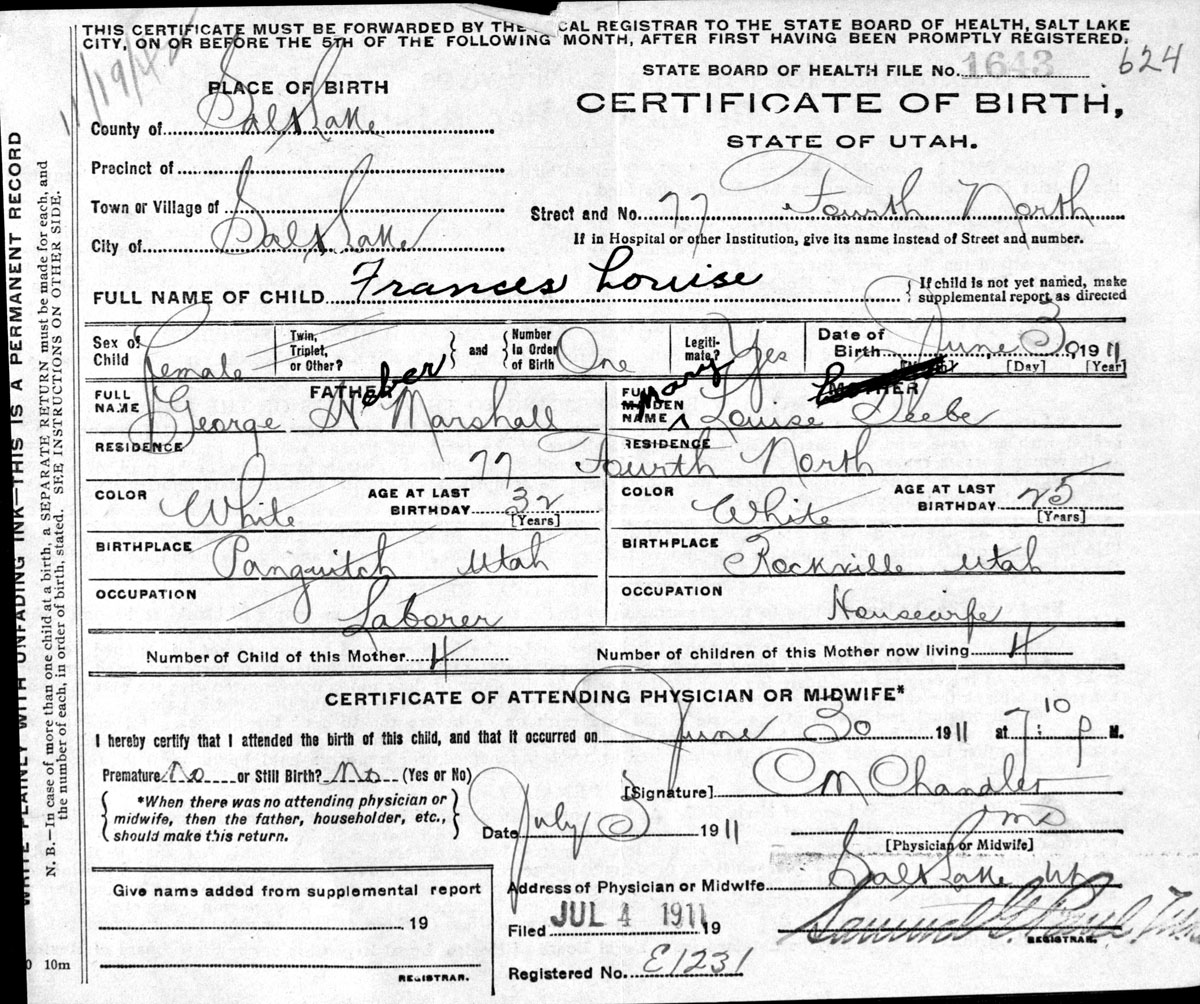 THIS CERTIFICATE MUST BE FORWARDED BY THE LOCAL REGISTRAR TO THE STATE BOARD OF HEALTH, SALT LAKE
CITY, ON OR BEFORE THE 5TH OF THE FOLLOWING MONTH, AFTER FIRST HAVING BEEN PROMPTLY REGISTERED.
STATE BOARD OF HEALTH FILE No. 1643 624
11/19/42
PLACE OF BIRTH
CERTIFICATE OF BIRTH,
STATE OF UTAH.
County of Salt Lake
Precinct of
Town or Village of
Street and No. 77 Fourth North
City of Salt Lake
If in Hospital or other Institution, give its name instead of Street and number.
FULL NAME OF CHILD Frances Louise
{ If child is not yet named, make
supplemental report as directed
Sex of Child Female
Twin, Triplet, or Other?
and
Number in Order of Birth One
Legitimate? Yes
Date of Birth June 30, 1911
[Day] [Year]
FATHER
FULL NAME George Heber Marshall
MOTHER
FULL MAIDEN NAME Mary Louise Beebe
RESIDENCE 77 Fourth North RESIDENCE
COLOR White
AGE AT LAST BIRTHDAY 32 [Years]
COLOR White
AGE AT LAST BIRTHDAY 25 [Years]
BIRTHPLACE Panguitch Utah
BIRTHPLACE Rockville Utah
OCCUPATION Laborer
OCCUPATION Housewife
Number of Child of this Mother 4
Number of children of this Mother now living 4
CERTIFICATE OF ATTENDING PHYSICIAN OR MIDWIFE*
I hereby certify that I attended the birth of this child, and that it occurred on June 30 1911 at 7:10 P M.
Premature No or Still Birth? No (Yes or No)
[Signature] C M Chandler
{ *When there was no attending physician or
midwife, then the father, householder, etc.,
should make this return. }
Date July 3 1911
MD
[Physician or Midwife]
Give name added from supplemental report
19
REGISTRAR.
Address of Physician or Midwife Salt Lake Ut
Filed JUL 4 1911 19
Samuel G. Paul
REGISTRAR.
Registered No. E1231
10m
WRITE PLAINLY WITH UNFADING INK—THIS IS A PERMANENT RECORD
N. B.—In case of more than one child at a birth, a SEPARATE RETURN must be made for each, and
the number of each, in order of birth, stated. SEE INSTRUCTIONS ON OTHER SIDE.